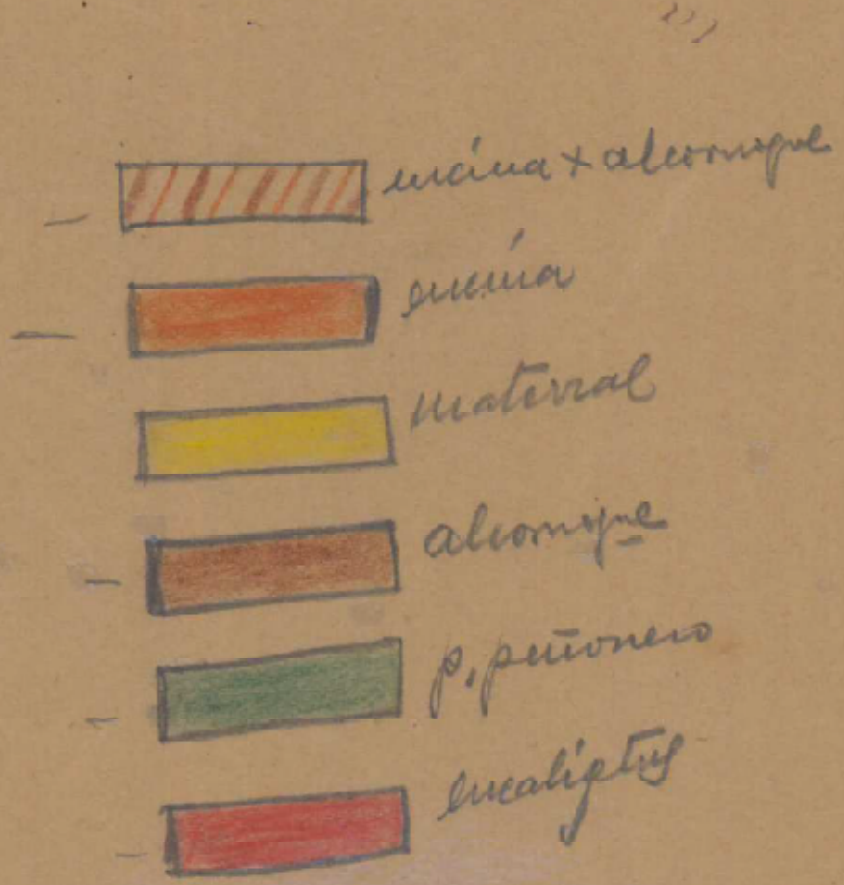 encina + alcornoque
encina
matorral
alcornoque
p. piñonero
eucaliptus